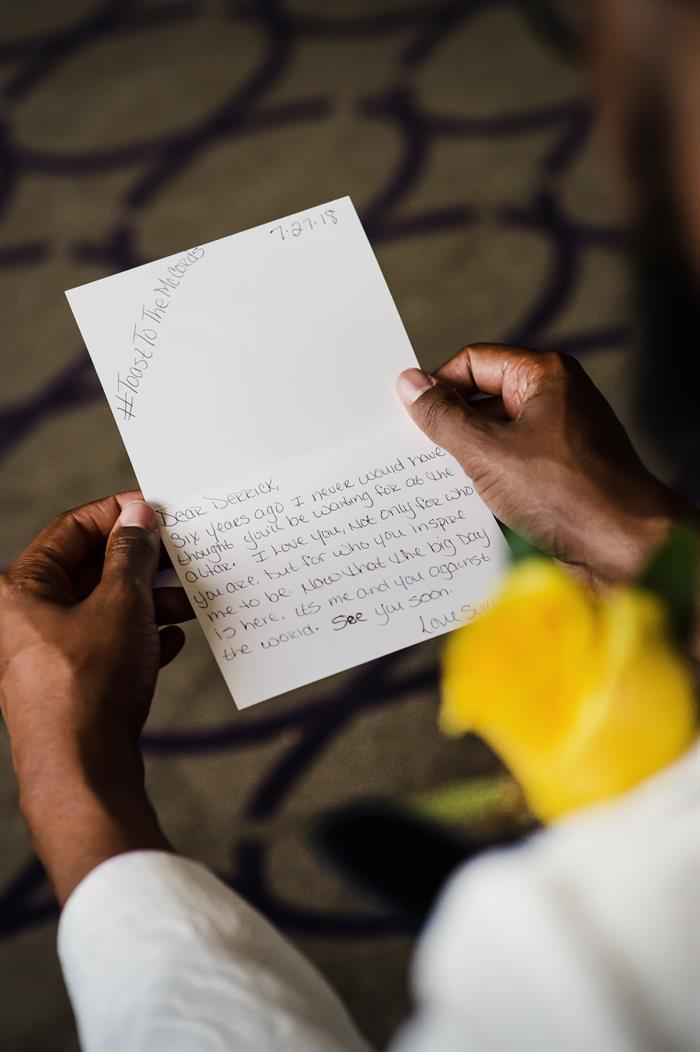 7.27.18
#Toast To The McCords
Dear Derrick,
Six years ago I never would have
thought you'll be waiting for at the
altar. I love you, not only for who
you are, but for who you inspire
me to be. Now that the big day
is here, its me and you against
the world. See you soon.
Love